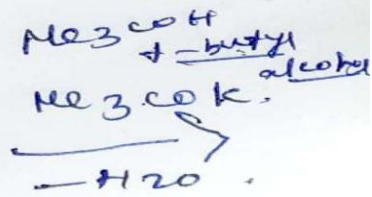 Me3COH
t-butyl
alcohol
Me3.COK.
-H2O.